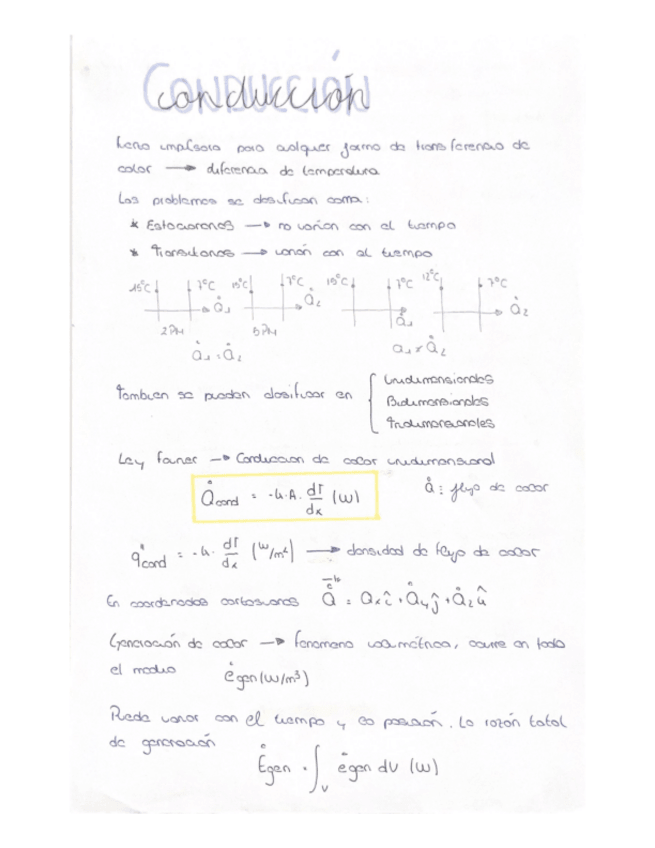 CONDUCCIÓN
conducción
Fuerza impulsora para cualquier forma de transferencia de
calor → diferencia de temperatura
Los problemas se clasifican como:
* Estacionarios → no varían con el tiempo
* Transitorios → varían con el tiempo
15°C 7°C 15°C 7°C 15°C 7°C 12°C 7°C
Q̇₁ Q̇₂ Q̇₁ Q̇₂
2PM 5PM
Q̇₁ = Q̇₂ Q₁ ≠ Q̇₂
También se pueden clasificar en
Unidimensionales
Bidimensionales
Tridimensionales
Ley Fourier → Conducción de calor unidimensional
Q̇cond = -k·A· dT/dx (W) Q̇: flujo de calor
q̇cond = -k· dT/dx (W/m²) → densidad de flujo de calor
En coordenadas cartesianas Q̇ = Qxî + Q̇yĵ + Q̇zk̂
Generación de calor → fenómeno volumétrico, ocurre en todo
el medio ėgen (W/m³)
Puede variar con el tiempo y la posición. La razón total
de generación
Ėgen = ∫v ėgen dV (W)